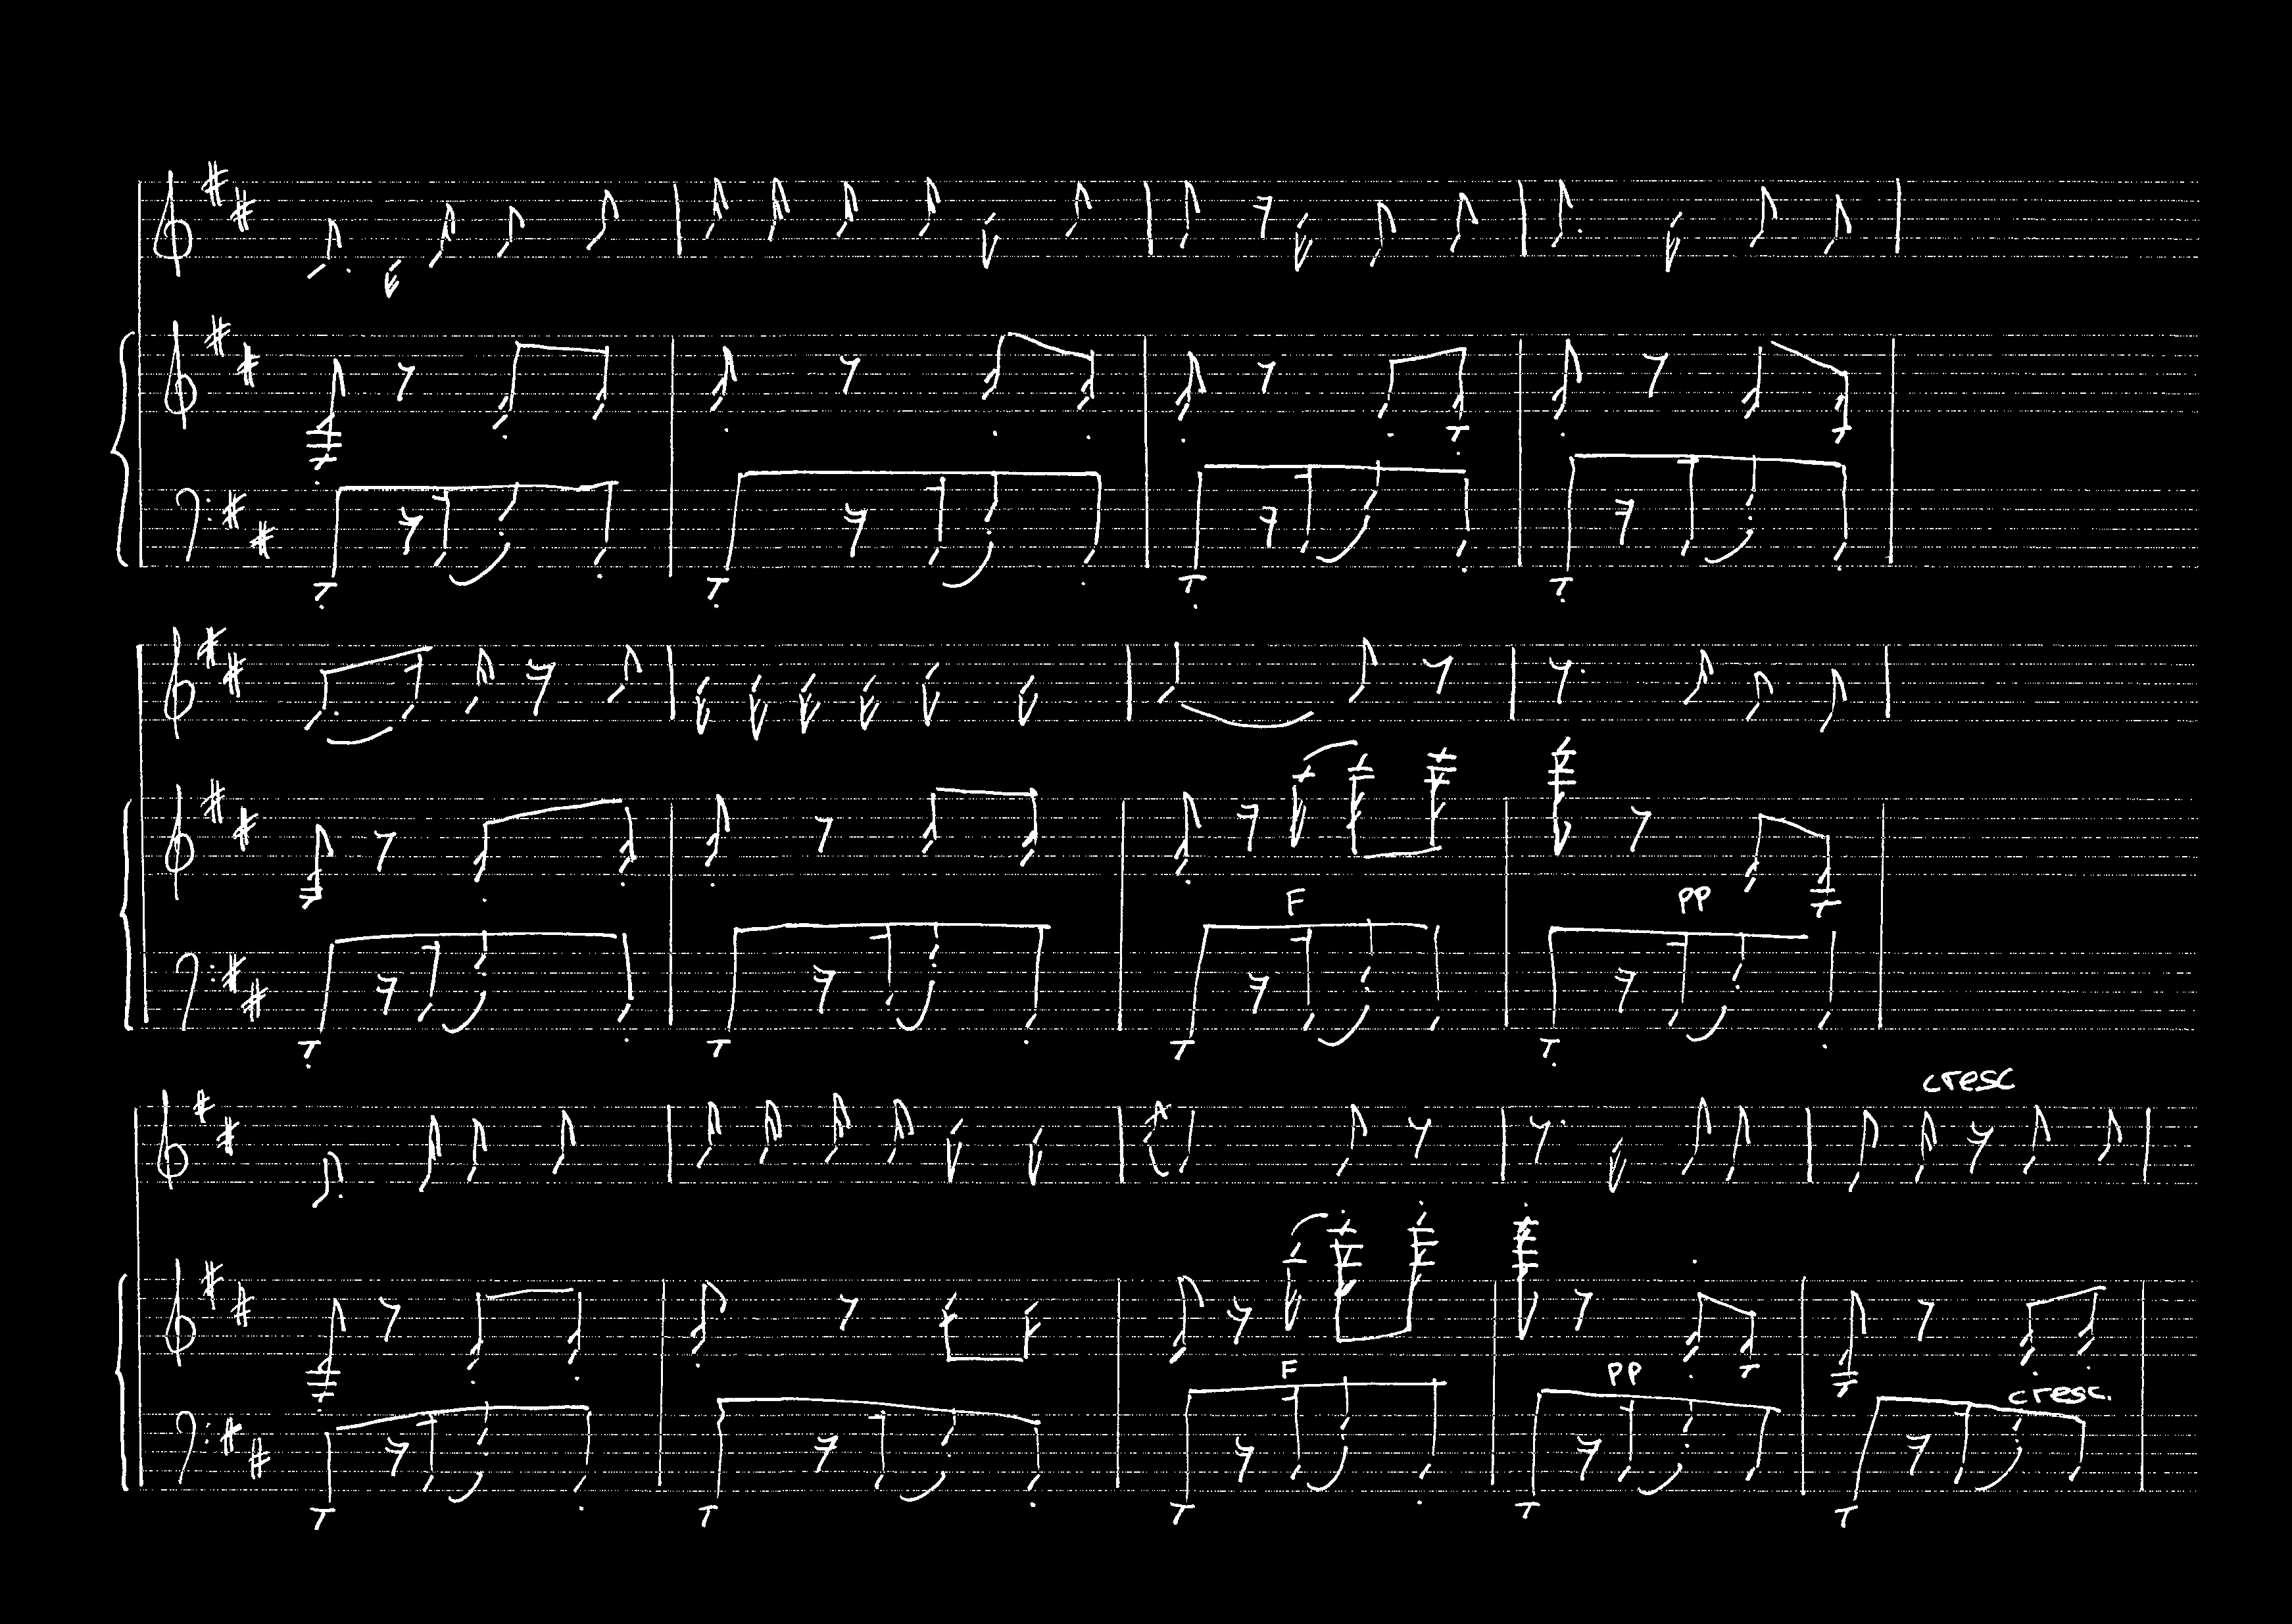 F
PP
cresc
F
PP
cresc.